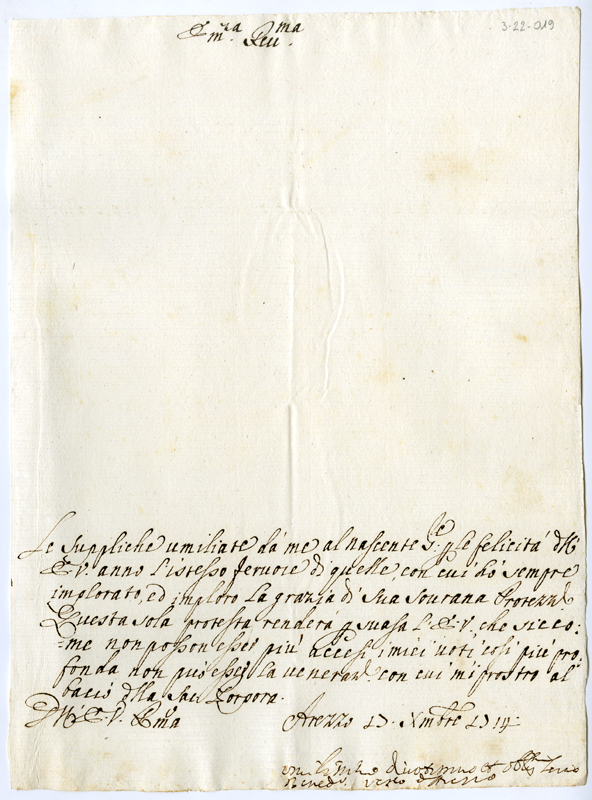 3-22-019
Em.za Reu.ma
Le suppliche umiliate da me al nascente p le felicità dll'
E.V. anno l'istesso feruore di quelle, con cui hò sempre
implorato, ed imploro la grazia di Sua Sourana Protezze
Questa sola protesta renderà p suasa l'E.V., che sicco:
=me non posson esser più accesi i miei uoti, così più pro
fonda non può esser la veneraze con cui mi prostro al
bacio dlla Sac. Porpora.
Dll' E.V. Rma Arezzo 17. Xmbre 1714.
umilissimo diuotissimo et Seruo
Bened. Vesco d'Arezzo